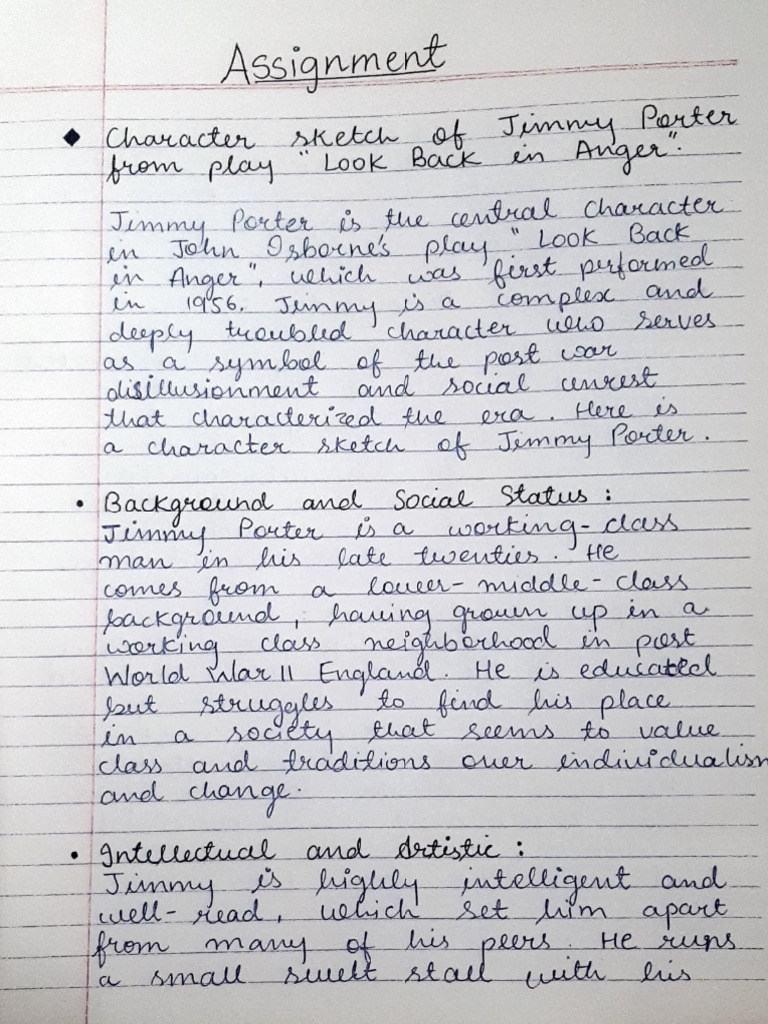 Assignment
◆ Character sketch of Jimmy Porter
from play "Look Back in Anger".
Jimmy Porter is the central character
in John Osborne's play "Look Back
in Anger", which was first performed
in 1956. Jimmy is a complex and
deeply troubled character who serves
as a symbol of the post war
disillusionment and social unrest
that characterized the era. Here is
a character sketch of Jimmy Porter.
• Background and Social Status :
Jimmy Porter is a working-class
man in his late twenties. He
comes from a lower-middle-class
background, having grown up in a
working class neighborhood in post
World War II England. He is educated
but struggles to find his place
in a society that seems to value
class and traditions over individualism
and change.
• Intellectual and Artistic :
Jimmy is highly intelligent and
well-read, which set him apart
from many of his peers. He runs
a small sweet stall with his